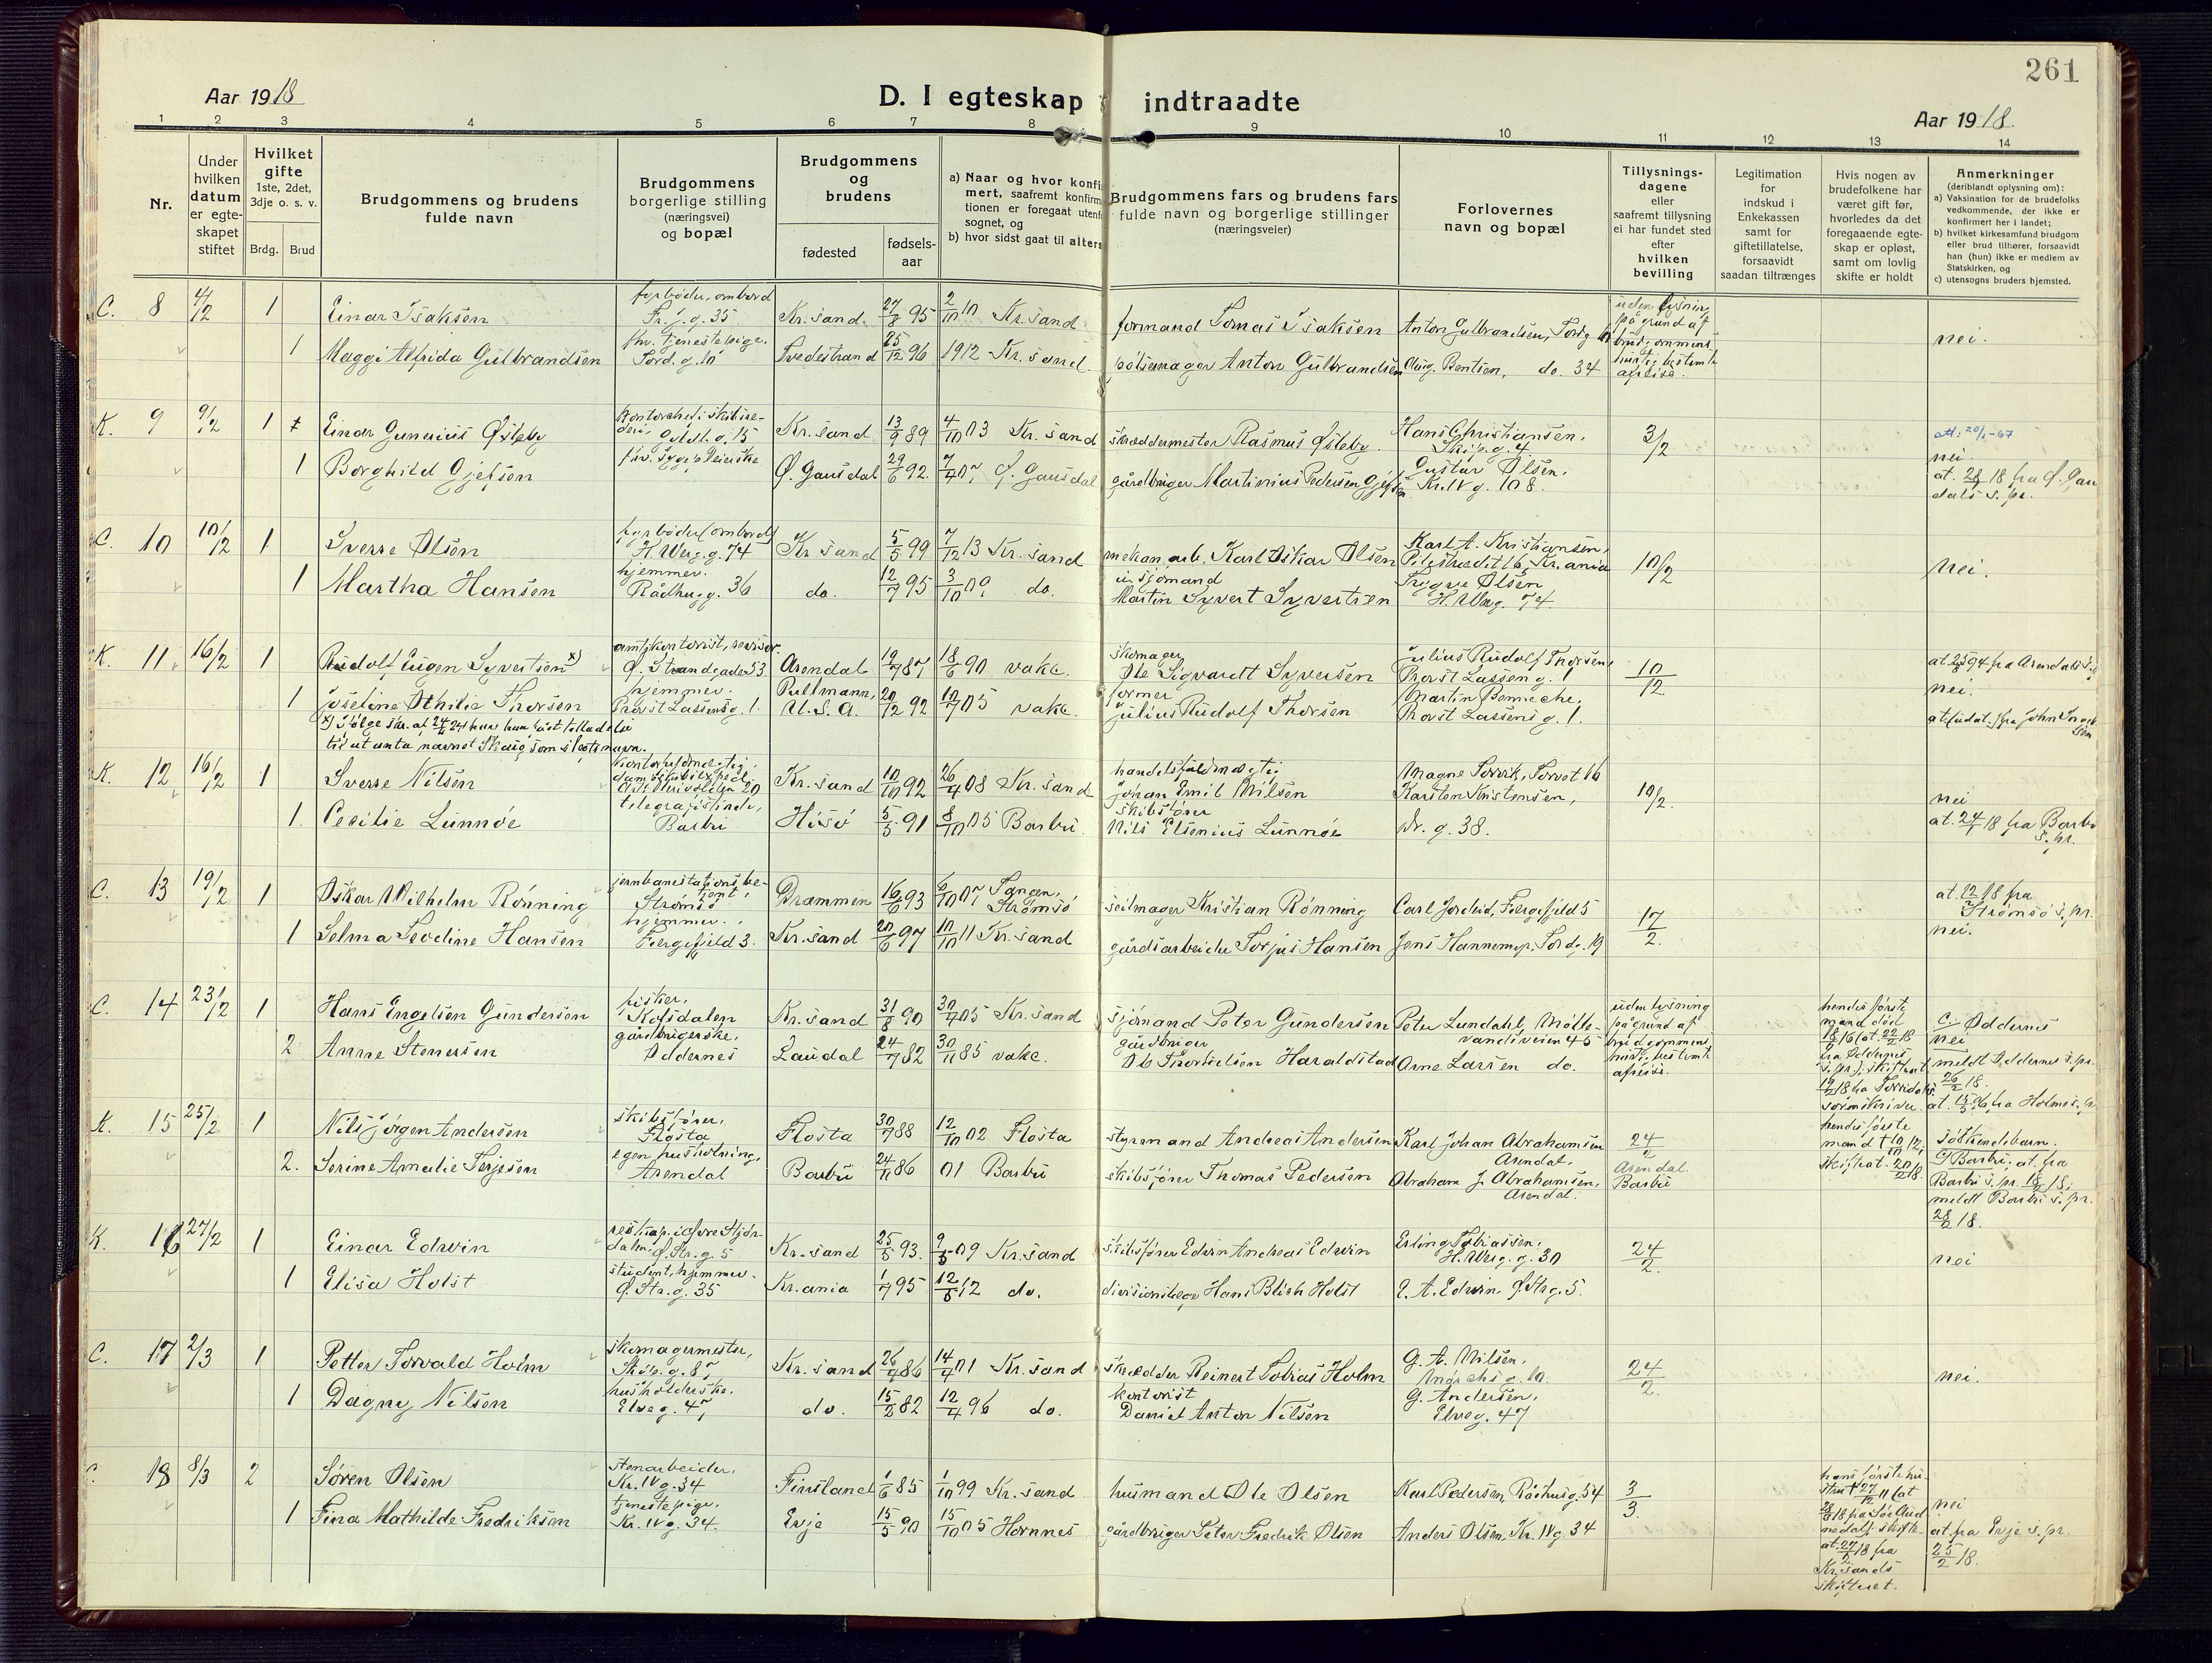 261
Aar 1918
D. I egteskap indtraadte
Aar 1918.
1 2 3 4 5 6 7 8 9 10 11 12 13 14
Nr.
Under hvilken datum er egteskapet stiftet
Hvilket gifte
1ste, 2det, 3dje o. s. v.
Brdg. Brud
Brudgommens og brudens fulde navn
Brudgommens borgerlige stilling (næringsvei) og bopæl
Brudgommens og brudens
fødested
fødsels-aar
a) Naar og hvor konfi
mert, saafremt konfirm
tionen er foregaat utenf
sognet, og
b) hvor sidst gaat til alters
Brudgommens fars og brudens fars
fulde navn og borgerlige stillinger
(næringsveier)
Forlovernes
navn og bopæl
Tillysnings-
dagene
eller
saafremt tillysning
ei har fundet sted
efter
hvilken
bevilling
Legitimation
for
indskud i
Enkekassen
samt for
giftetillatelse,
forsaavidt
saadan tiltrænges
Hvis nogen av
brudefolkene har
været gift før,
hvorledes da det
foregaaende egte-
skap er opløst,
samt om lovlig
skifte er holdt
Anmerkninger
(deriblandt oplysning om):
a) Vaksination for de brudefolks
vedkommende, der ikke er
konfirmert her i landet;
b) hvilket kirkesamfund brudgom
eller brud tilhører, forsaavidt
han (hun) ikke er medlem av
Statskirken, og
c) utensogns bruders hjemsted.
C. 8 4/2 1 Einar Isaksen fyrbøder, ombord Kr.sand 27/8 95 2/10 10 Kr.sand formand Tomas Isaksen Anton Gulbrandsen, Tordg. 10 uden lysning på grund af brudgommens hurtig bestemte afreise. nei.
1 Maggi Alfrida Gulbrandsen fhv. tjenestepige. Tord.g.10 Tvedestrand 25/12 96 1912 Kr.sand. Anton Gulbrandsen Aug. Bentsen, do. 34
K. 9 9/2 1 Einar Gunerius Østeby Kr.sand 13/9 89 4/10 03 Kr.sand skræddermester Rasmus Østeby. Hans Christiansen, Skip.g.4. 3/2 nei.
1 Borghild Gjefsen fhv. sygepleierske Ø. Gausdal 29/6 92. 7/7 07, Ø. Gausdal gårdbruger Martinius Pedersen Gjefsen. Gustav Olsen, Kr.IV g. 108. at. 28/1 18 fra Ø. Gausdals s.pr.
C. 10 10/2 1 Sverre Olsen fyrbøder (ombord) H.Werg.g. 74 Kr.sand 5/5 99 7/12 13 Kr.sand mekan.arb. Karl Oskar Olsen Karl A. Kristiansen, Pilestrædet 16, Kr.ania 10/2 nei.
1 Martha Hansen hjemmev. Rådhusg. 36 do. 12/7 95 3/10 09, do. sjømand Martin Syvert Syvertsen Trygve Olsen H.Werg. 74
K. 11. 16/2 1 Rudolf Eugen Syvertsen x) amtskontorist, revisor. Ø. Strandgade 53 Arendal 19/7 87 18/6 90 vakc. skomager Ole Sigvardt Syversen Julius Rudolf Thorsen, Provst Lassens g. 1 10/12 at. fra Arendals nei.
1 Joseline Othilie Thorsen hjemmev. Provst Lassensg. 1. Pullmann, U.S.A. 20/12 92 10/7 05 vakc. former Julius Rudolf Thorsen Martin Benneche, Provst Lassens g. 1.
x) Ifølge skr. af 24/4 24 har han faat tilladelse
til at anta navnet Skaug som slegtsnavn.
K. 12 16/2 1 Sverre Nilsen kontorfuldmægtig, dampskibsexped. 20 Kr.sand 10/10 92 26/4 08 Kr.sand handelsfuldmægtig Johan Emil Nilsen Magne Torvik, Torvet 16 10/2. nei
1. Cecilie Lunnøe telegrafistinde, Barbu Hisø 5/5 91 8/10 05 Barbu. skibsfører Nils Elsenius Lunnøe Karsten Kristensen, Dr. g. 38. at. 24/1 18 fra Barbu s.pr.
C. 13 19/2 1 Oskar Wilhelm Rønning jernbanestationsbetjent, Strømsø Drammen 16/6 93 6/10 07, Tangen, Strømsø seilmager Kristian Rønning Carl Jordeid, Færgefjeld 5 17/2. at. 12/2 18 fra Strømsø s.pr.
1 Selma Teodine Hansen hjemmev. Færgefjeld 3. Kr.sand 20/6 97 10/10 11 Kr.sand gårdsarbeider Torjus Hansen Jens Hannemyr, Tordg. 19 nei.
C. 14 23/2 1 Hans Engelsen Gundersen fisker, Kolsdalen Kr.sand 31/8 90 30/4 05 Kr.sand sjømand Peter Gundersen Peter Lundahl, Møllevandsveien 45 uden lysning på grund af brudgommens hurtig bestemte afreise. hendes første mand død 18/9 16 (at. 22/2 18 fra Oddernes s.pr.) skifteat 19/2 18 fra Torridals sorenskriver. C/ Oddernes nei
2 Anne Stenersen gårdbrugerske, Oddernes Laudal 24/7 82 30/11 85 vakc. gårdbruger Ole Thorkildsen Haraldstad Arne Larsen do. meldt Oddernes s.pr. 26/2 18.
K. 15 25/2 1 Nils Jørgen Andersen skibsfører, Flosta Flosta 30/7 88 12/10 02 Flosta styrmand Andreas Andersen Karl Johan Abrahamsen Arendal. 24/2 Arendal Barbu hendes første mand † Søskendebarn.
2. Serine Amalie Terjesen egen husholning, Arendal Barbu 24/11 86 01 Barbu skibsfører Thomas Pedersen Abraham J. Abrahamsen, Arendal. C/ Barbu; at. fra Barbu s.pr. 18/2 18; meldt Barbu s.pr. 28/2 18.
K. 16 27/2 1 Einar Edwin Ø.Str.g. 5 Kr.sand 25/5 93. 9/5 09 Kr.sand skibsfører Edwin Andreas Edwin Erling Tobiassen, H.Werg.g. 30 24/2. nei
1 Elisa Holst student, hjemmev. Ø.Str.g. 35 Kr.ania 1/7 95 12/5 12 do. divisionslæge Hans Blich Holst E. A. Edwin Ø.Strg. 5.
C. 17 2/3 1 Petter Torvald Holm skomagermester, Skip.g. 8, Kr.sand 26/4 86 14/4 01 Kr.sand skrædder Reinert Tobias Holm G. A. Nilsen, 24/2. nei.
1 Dagny Nilsen husholderske. Elveg. 47, do. 15/2 82 12/4 96 do. kontorist Daniel Anton Nilsen G. Andersen, Elveg. 47
C. 18 8/3 2 Søren Olsen stenarbeider, Kr.IV g. 34 Finsland 1/6 85 1/10 99 Kr.sand husmand Ole Olsen Karl Pedersen, Rådhusg. 54 3/3. hans første hustru † 27/12 11 (at 28/2 18 fra Sør Audnedal); skifteat. 27/2 18 fra Kr.sands skifteret. nei
1 Fina Mathilde Fredriksen tjenestepige, Kr.IV g. 34. Evje 15/5 90 15/10 05 Hornnes gårdbruger Peter Fredrik Olsen Anders Olsen, Kr.IV g. 34 at. fra Evje s.pr. 25/2 18.